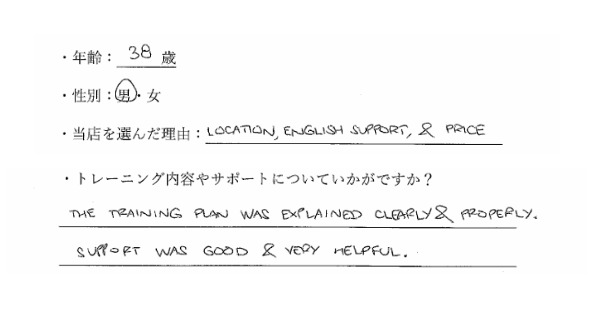 ・年齢：38 歳
・性別：男・女
・当店を選んだ理由：LOCATION, ENGLISH SUPPORT, & PRICE
・トレーニング内容やサポートについていかがですか？
THE TRAINING PLAN WAS EXPLAINED CLEARLY & PROPERLY.
SUPPORT WAS GOOD & VERY HELPFUL.